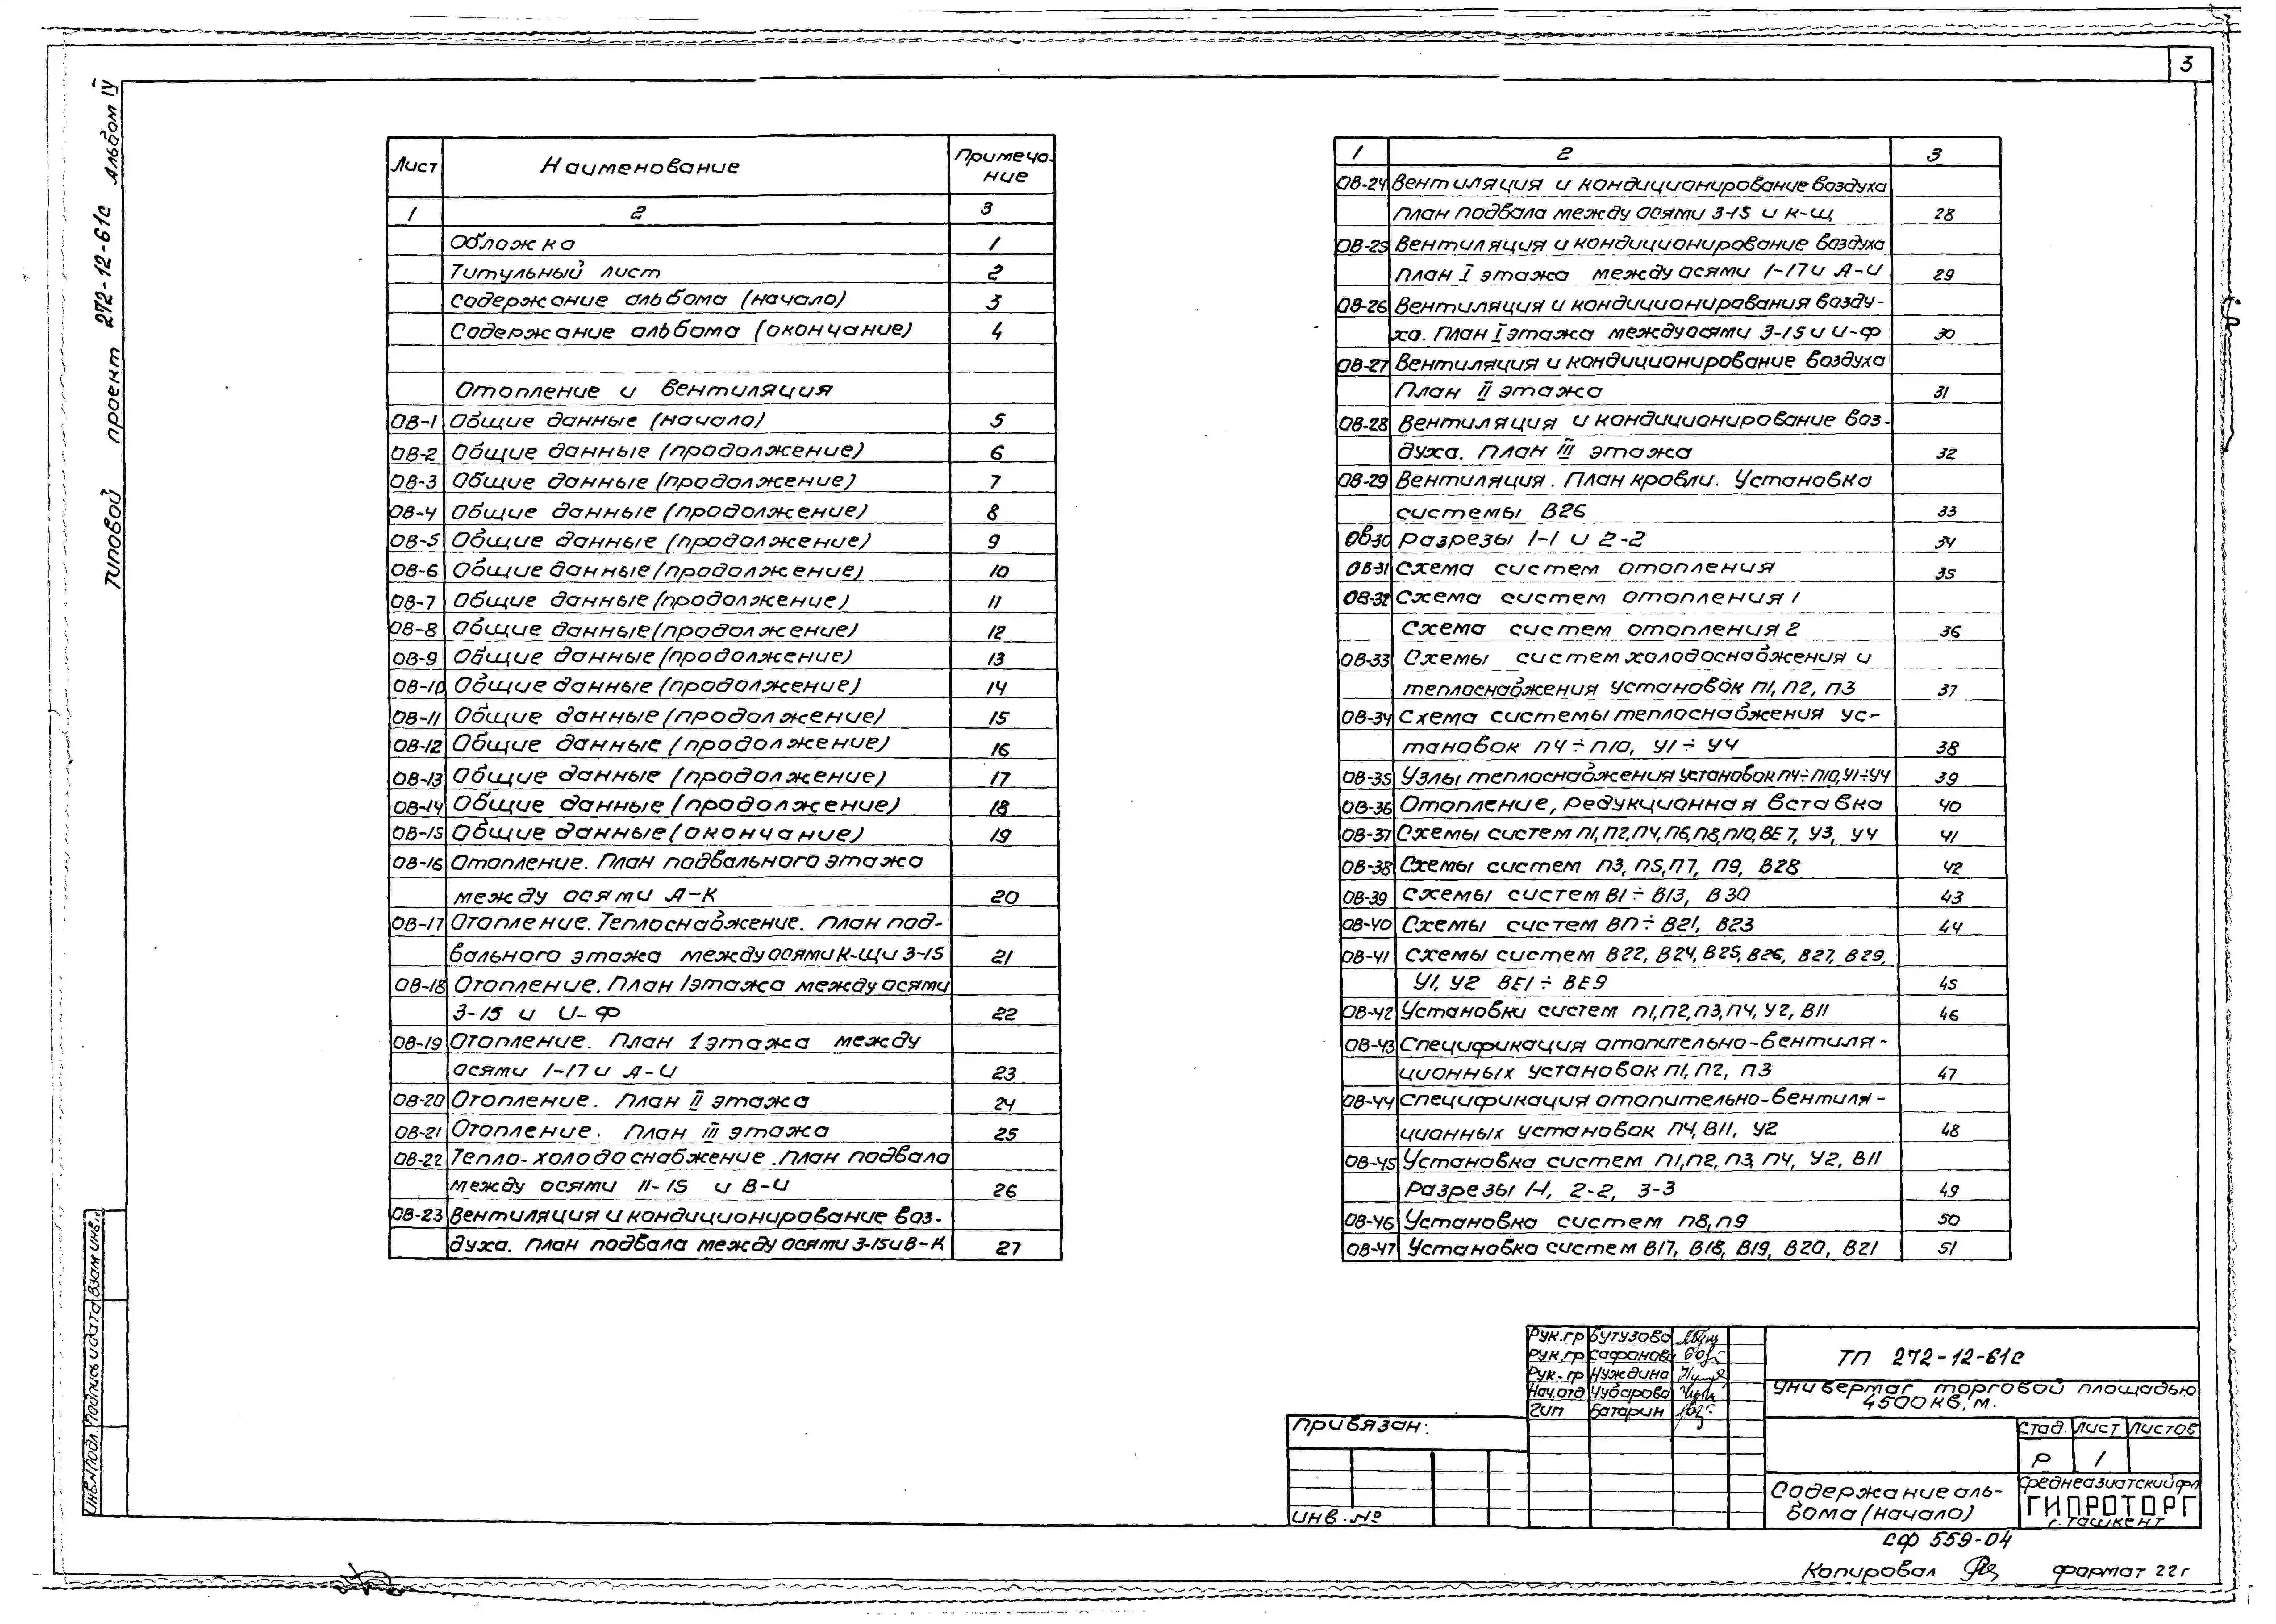 3
Типовой проект 272-12-61с Альбом IV
Лист Наименование Примеча-
ние
1 2 3
Обложка 1
Титульный лист 2
Содержание альбома (начало) 3
Содержание альбома (окончание) 4
Отопление и вентиляция
ОВ-1 Общие данные (начало) 5
ОВ-2 Общие данные (продолжение) 6
ОВ-3 Общие данные (продолжение) 7
ОВ-4 Общие данные (продолжение) 8
ОВ-5 Общие данные (продолжение) 9
ОВ-6 Общие данные (продолжение) 10
ОВ-7 Общие данные (продолжение) 11
ОВ-8 Общие данные (продолжение) 12
ОВ-9 Общие данные (продолжение) 13
ОВ-10 Общие данные (продолжение) 14
ОВ-11 Общие данные (продолжение) 15
ОВ-12 Общие данные (продолжение) 16
ОВ-13 Общие данные (продолжение) 17
ОВ-14 Общие данные (продолжение) 18
ОВ-15 Общие данные (окончание) 19
ОВ-16 Отопление. План подвального этажа
между осями А-К 20
ОВ-17 Отопление. Теплоснабжение. План под-
вального этажа между осями К-Щ и 3-15 21
ОВ-18 Отопление. План 1 этажа между осями
3-15 и И-Ф 22
ОВ-19 Отопление. План 1 этажа между
осями 1-17 и А-И 23
ОВ-20 Отопление. План II этажа 24
ОВ-21 Отопление. План III этажа 25
ОВ-22 Тепло-холодоснабжение. План подвала
между осями 11-15 и В-И 26
ОВ-23 Вентиляция и кондиционирование воз-
духа. План подвала между осями 3-15 и В-К 27
1 2 3
ОВ-24 Вентиляция и кондиционирование воздуха
План подвала между осями 3-15 и К-Щ 28
ОВ-25 Вентиляция и кондиционирование воздуха
План I этажа между осями 1-17 и А-И 29
ОВ-26 Вентиляция и кондиционирования возду-
ха. План I этажа между осями 3-15 и И-Ф 30
ОВ-27 Вентиляция и кондиционирование воздуха
План II этажа 31
ОВ-28 Вентиляция и кондиционирование воз-
духа. План III этажа 32
ОВ-29 Вентиляция. План кровли. Установка
системы В26 33
ОВ-30 Разрезы 1-1 и 2-2 34
ОВ-31 Схема систем отопления 35
ОВ-32 Схема систем отопления 1
Схема систем отопления 2 36
ОВ-33 Схемы систем холодоснабжения и
теплоснабжения установок П1, П2, П3 37
ОВ-34 Схема системы теплоснабжения ус-
тановок П4÷П10, У1÷У4 38
ОВ-35 Узлы теплоснабжения установок П4÷П10, У1÷У4 39
ОВ-36 Отопление, редукционная вставка 40
ОВ-37 Схемы систем П1, П2, П4, П6, П8, П10, ВЕ7, У3, У4 41
ОВ-38 Схемы систем П3, П5, П7, П9, В28 42
ОВ-39 Схемы систем В1÷В13, В30 43
ОВ-40 Схемы систем В17÷В21, В23 44
ОВ-41 Схемы систем В22, В24, В25, В26, В27, В29,
У1, У2 ВЕ1÷ВЕ9 45
ОВ-42 Установки систем П1, П2, П3, П4, У2, В11 46
ОВ-43 Спецификация отопительно-вентиля-
ционных установок П1, П2, П3 47
ОВ-44 Спецификация отопительно-вентиля-
ционных установок П4, В11, У2 48
ОВ-45 Установка систем П1, П2, П3, П4, У2, В11
Разрезы 1-1, 2-2, 3-3 49
ОВ-46 Установка систем П8, П9 50
ОВ-47 Установка систем В17, В18, В19, В20, В21 51
Рук.гр Бутузова
Рук.гр Сафонова
Рук.гр Нуждина
Нач.отд Чубарова
Гип Батарин
ТП 272-12-61с
Универмаг торговой площадью
4500 кв.м.
Привязан:
Инв.№
Стад. Лист Листов
Р 1
Содержание аль-
бома (начало)
Среднеазиатский фил
ГИПРОТОРГ
г. Ташкент
Инв.№ подл. Подпись и дата Взам инв.
СФ 559-04
Копировал Формат 22г